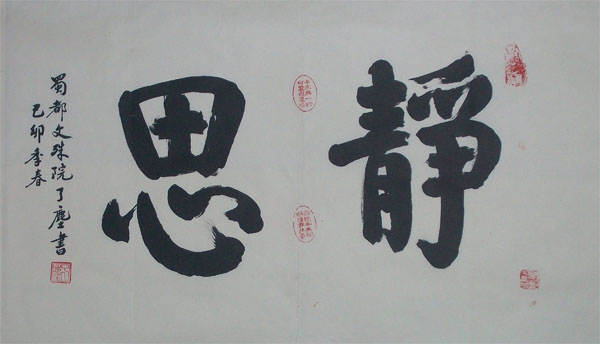 靜思
己卯季春
蜀都文殊院了塵書